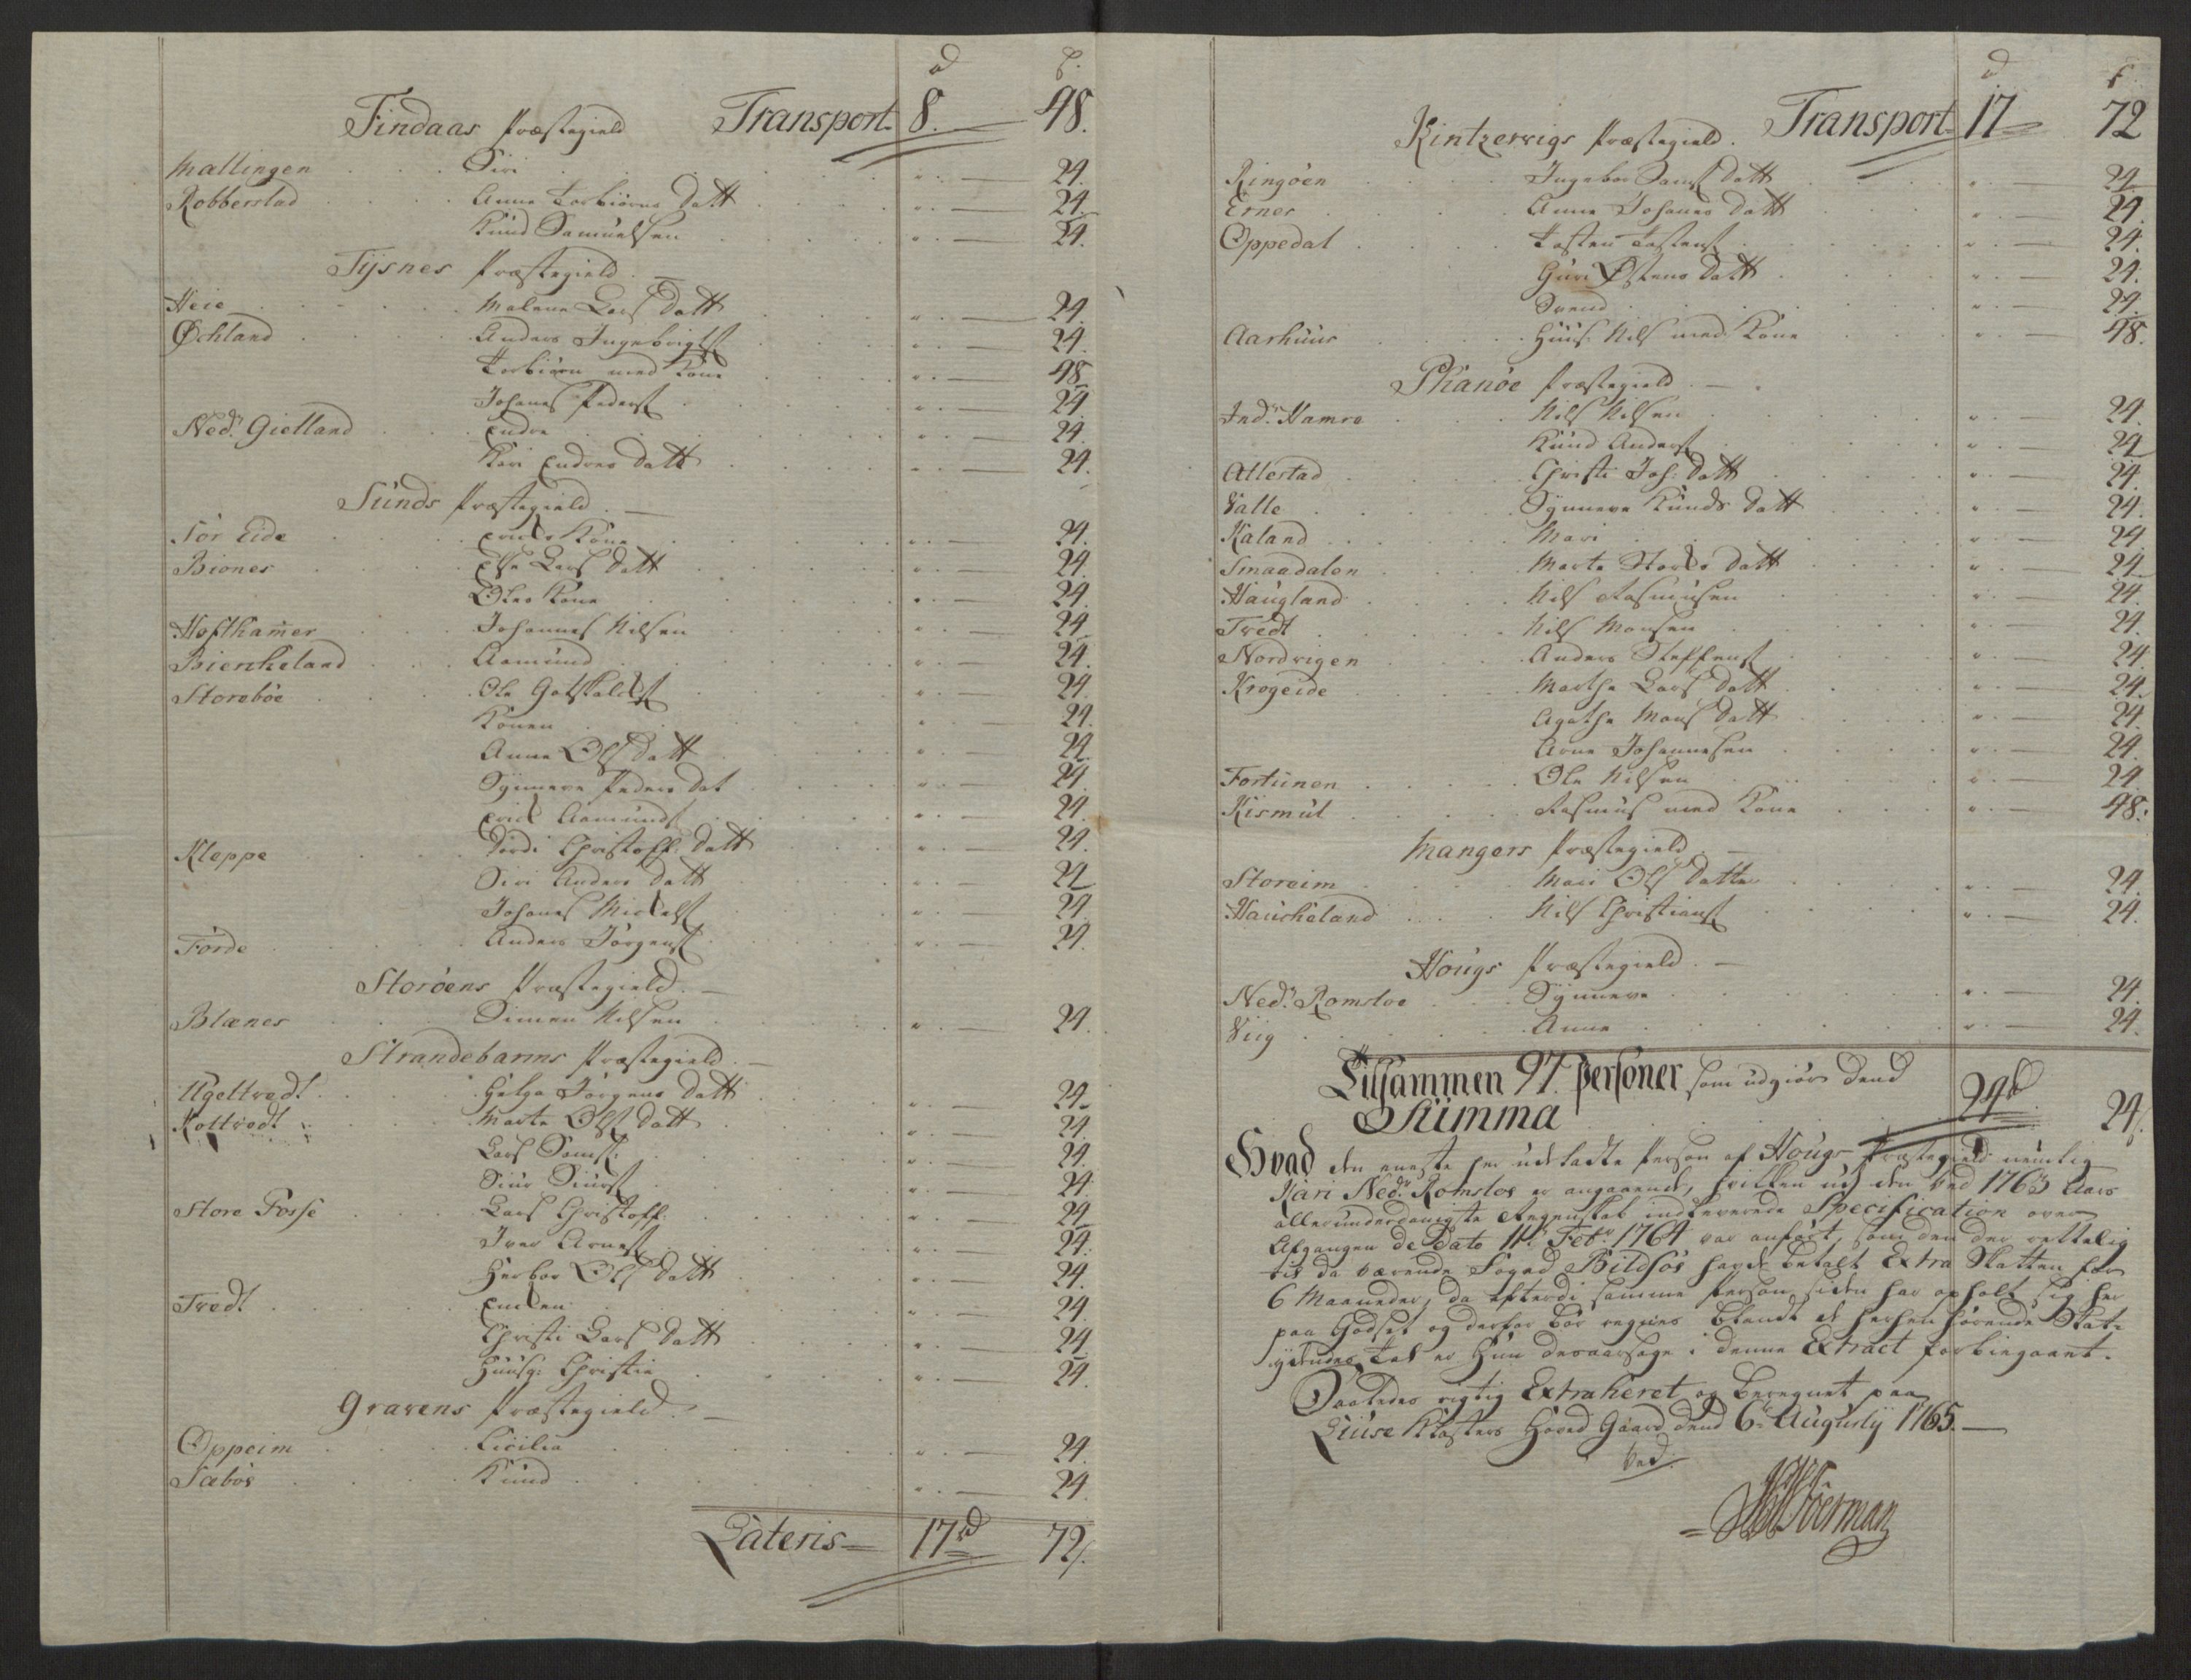 d ß.
Findaas Præstegield Transport 8. — 48.
Mællingen . . . Siri . . . " . — 24.
Robberstad . . . Anna Torbiørns Datt . . . " . — 24.
Knud Samuelsen . . . " . — 24.
Tÿsnes Præstegield . —
Heie . . . Malena Lars Datt . . . " . — 24.
Øchland . . . Anders Ingebrigts. . . . " . — 24.
Torbiørn med Kone . . . " . — 48.
Johanes Peders. . . . " . — 24.
Nedr. Gielland . . . Endre . . . " . — 24.
Kari Endres Datt . . . " . — 24.
Sunds Præstegield . —
Sør Eide . . . Erichs Kone . . . " . — 24.
Biones . . . Else Lars Datt . . . " . — 24.
Oles Kone . . . " . — 24.
Hofthamer . . . Johannes Nilsen . . . " . — 24.
Bierkeland . . . Aamund . . . " . — 24.
Storebøe . . . Ole Gotskalks. . . . " . — 24.
Konen . . . " . — 24.
Anna Ols Datt . . . " . — 24.
Synneve Peders Dat . . . " . — 24.
Erick Aamunds. . . . " . — 24.
Kleppe . . . Dordi Christoff. Datt . . . " . — 24.
Siri Anders Datt . . . " . — 24.
Johanes Mickels. . . . " . — 24.
Førde . . . Anders Jørgens. . . . " . — 24.
Storøens Præstegield . —
Blænes . . . Simen Nilsen . . . " . — 24.
Strandebarms Præstegield . —
Ugeltvedt . . . Helga Jørgens Datt . . . " . — 24.
Koltvedt . . . Marta Ols Datt . . . " . — 24.
Lars Sams. . . . " . — 24.
Siur Siurs. . . . " . — 24.
Store Fosse . . . Lars Christoff. . . . " . — 24.
Iver Arnes. . . . " . — 24.
Herbor Ols Datt . . . " . — 24.
Tvedt . . . Enken . . . " . — 24.
Christi Lars Datt . . . " . — 24.
Huusq: Christin . . . " . — 24.
Gravens Præstegield . —
Oppeim . . . Cicilia . . . " . — 24.
Sæbøe . . . Knud . . . " . — 24.
Lateris — 17 d 72 ß.
d ß
Kintzervigs Præstegield . Transport 17 — 72
Ringøen . . . Ingebor Sams. Datt . . . " . — 24.
Ernes . . . Anna Johanes Datt . . . " . — 24.
Oppedal . . . Tosten Tostens. . . . " . — 24.
Guri Østens Datt . . . " . — 24.
Svend . . . " . — 24.
Aarhuus . . . Huus. Nils med Kone . . . " . — 48.
Phanøe Præstegield . — .
Indr. Hamre . . . Nils Nilsen . . . " . — 24.
Knud Anders. . . . " . — 24
Allestad . . . Christi Joh: Datt . . . " . — 24.
Valle . . . Synneve Knuds Datt . . . " . — 24.
Kaland . . . Mari . . . " . — 24.
Smaadalen . . . Marta Storks Datt . . . " . — 24
Haugland . . . Nils Rasmusen . . . " . — 24.
Tvedt . . . Nils Monsen . . . " . — 24.
Nordvigen . . . Anders Steffens. . . . " . — 24.
Krogeide . . . Marthe Lars Datt . . . " . — 24.
Agathe Mons Datt . . . " . — 24.
Arne Johannesen . . . " . — 24.
Fortunen . . . Ole Nilsen . . . " . — 24.
Kismul . . . Rasmus med Kone . . . " . — 48.
Mangers Præstegield . —
Storeim . . . Mari Ols Datter . . . " . — 24.
Haukeland . . . Nils Christians. . . . " . — 24.
Hougs Præstegield . —
Nedr. Romsloe . . . Synneve . . . " . — 24.
Viig . . . Anna . . . " . — 24.
Tilsammen 97. Personer som udgiør dend
Summa . . . 24 d 24 ß
Hvad den eneste her udeladte Person af Hougs Præstegield nemlig
Kari Nedr. Romsloe er angaaende, hvilken udj den ved 1763 Aars
allerunderdanigste Regenskab indleverede Specification over
Afgangen de Dato 11te Febr. 1764 var anført, som den der rettelig
til da værende Foged Bildsøe havde betalt Extra Skatten for
6 Maaneder, da efterdi samme Person siden har opholt sig her
paa Godset og derfor bør regnes blandt de herhen hørende Skat-
ydendes Tal er Hun desaarsage i denne Extract forbiegaaet.
Saaledes rigtig Extraheret og beregnet paa
Liuse Klosters Hoved Gaard dend 6te Augusty 1765. —
ved.